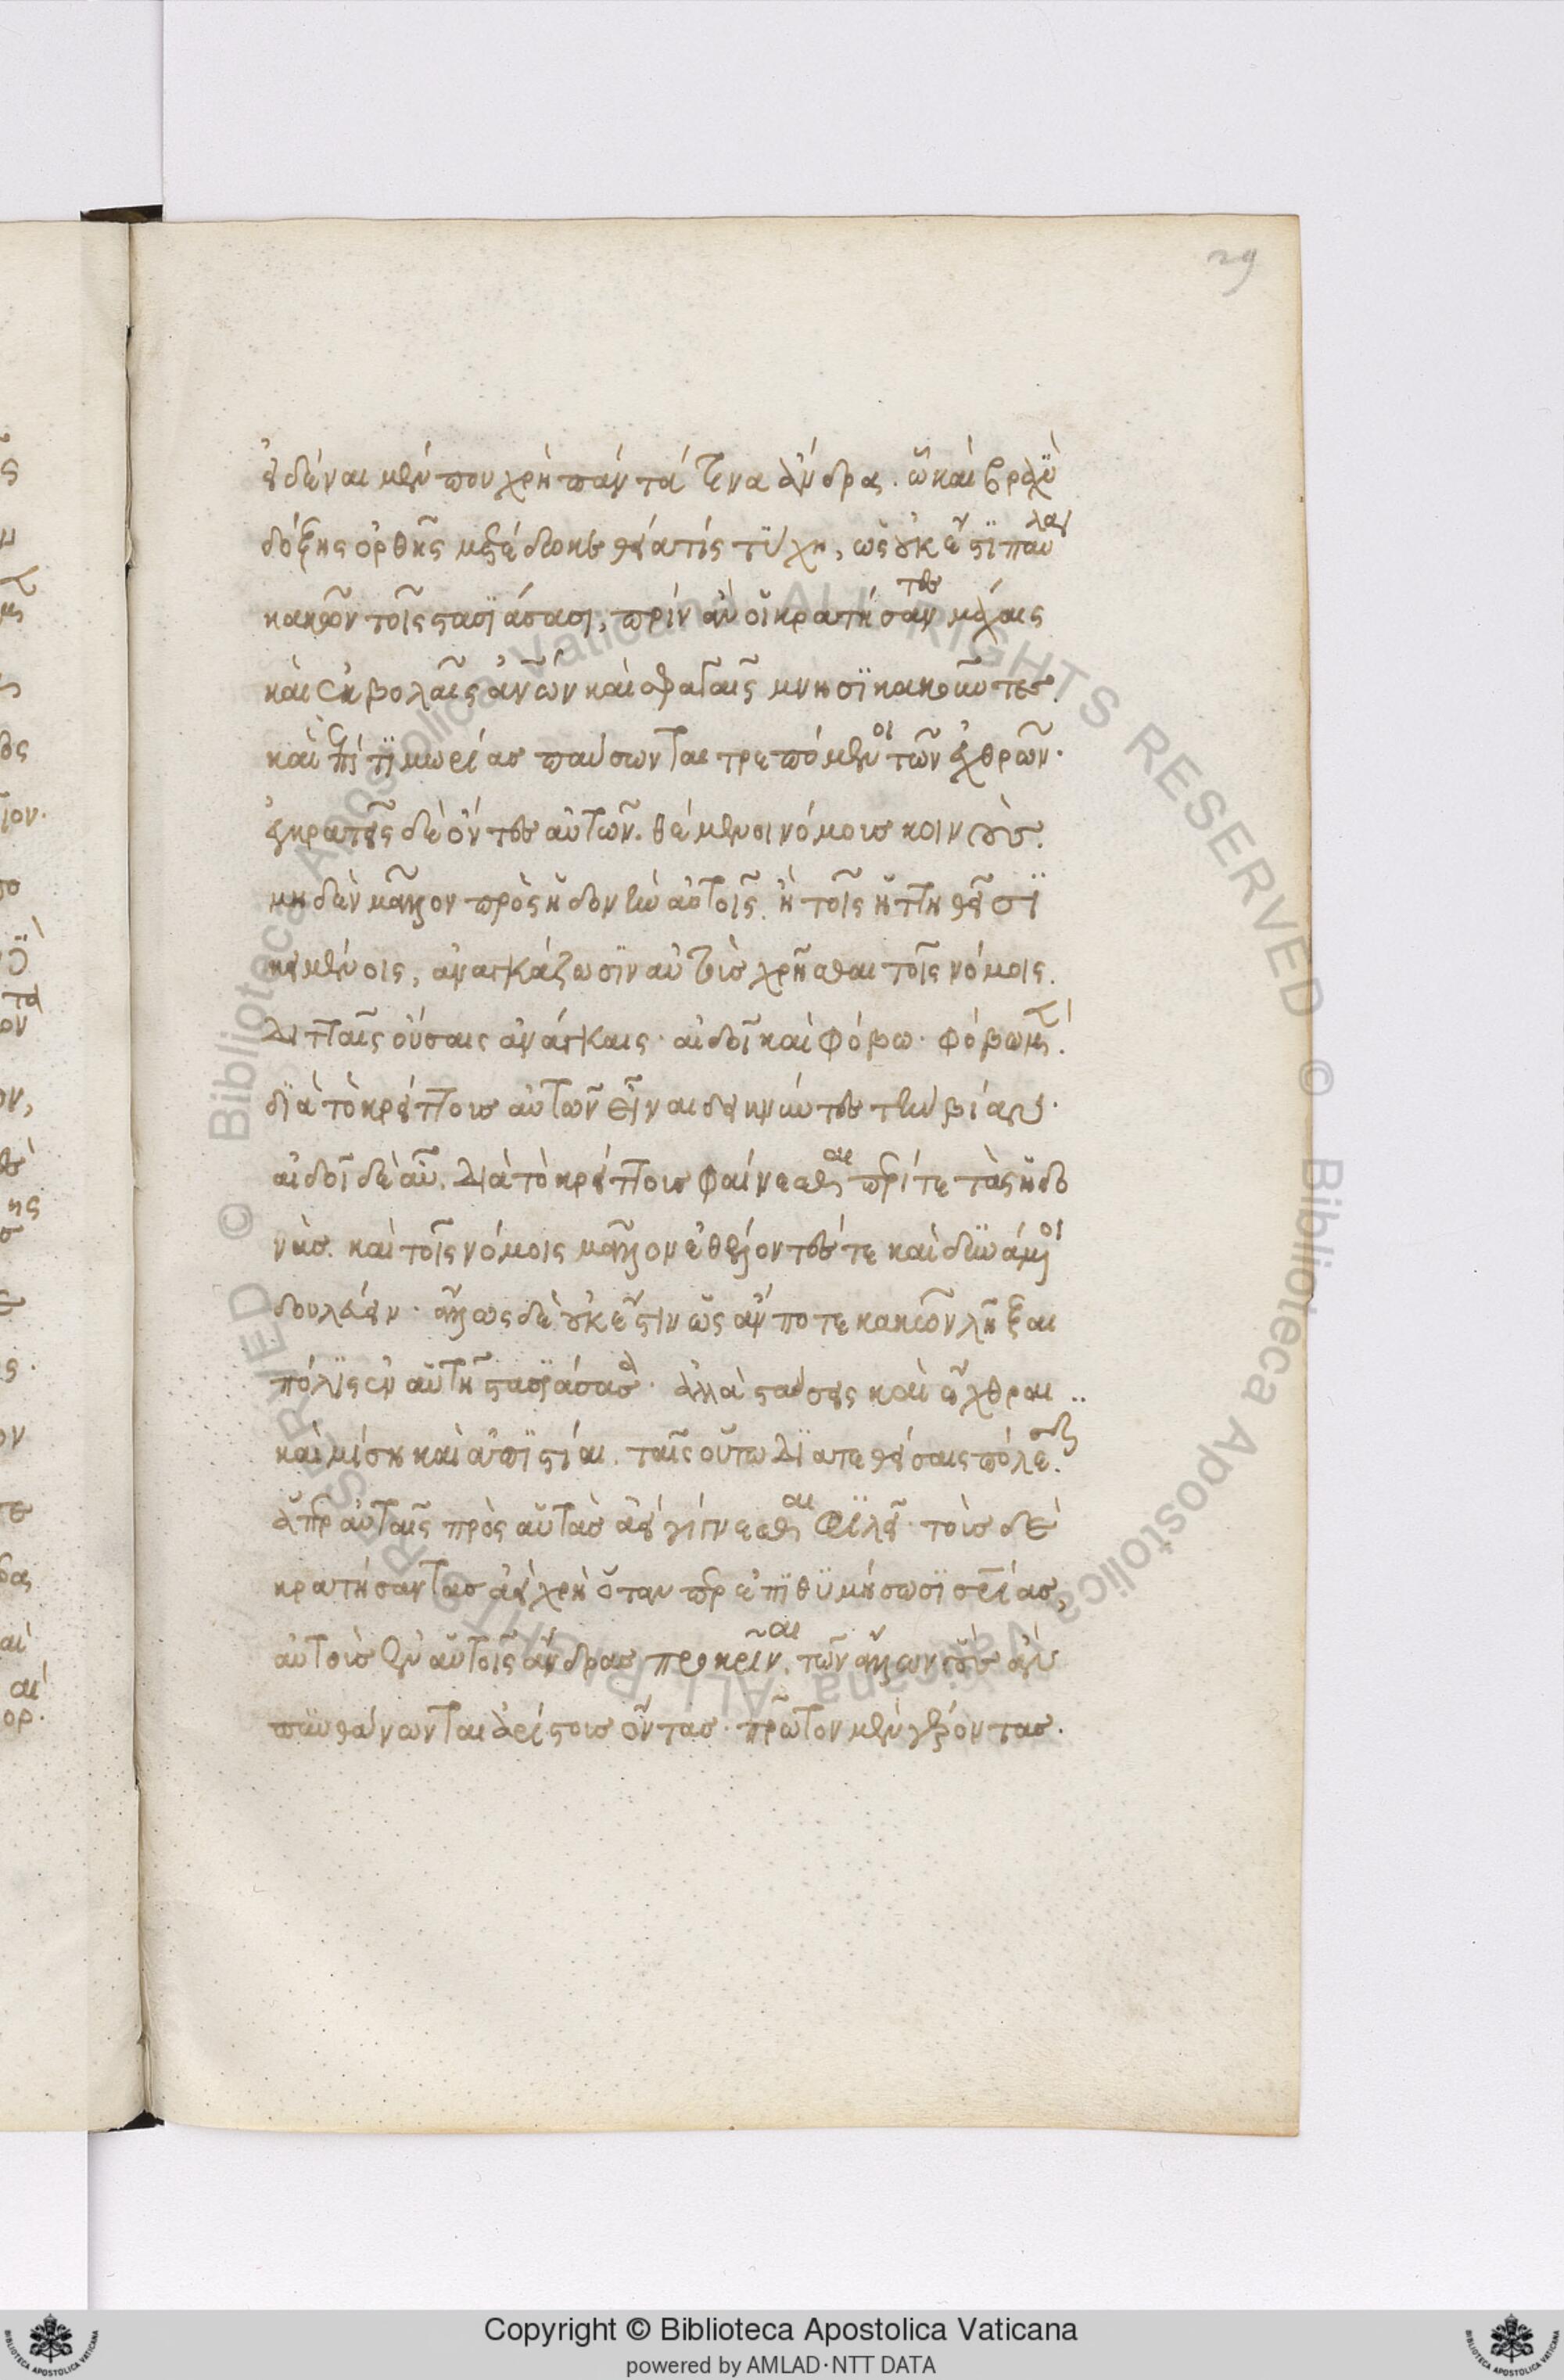 εἰδέναι μέν που χρὴ πάντά τινα ἄνδρα. ᾧ καὶ βραχὺ
δόξης ὀρθῆς μετέδωκε θεία τίς τύχη, ὡς οὐκ ἔστι παῦλαν
κακῶν τοῖς στασιάσασι, πρὶν ἂν οἱ κρατήσαντες μάχαις
καὶ ἐκβολαῖς ἀνθρώπων καὶ σφαγαῖς μνησικακοῦντες.
καὶ ἐπὶ τιμωρίας παύσωνται τρεπόμενοι τῶν ἐχθρῶν.
ἐγκρατεῖς δὲ ὄντες αὑτῶν. θέμενοι νόμους κοινούς.
μηδὲν μᾶλλον πρὸς ἡδονὴν αὑτοῖς. ἢ τοῖς ἡττηθεῖσι
κειμένοις, ἀναγκάζωσιν αὐτοὺς χρῆσθαι τοῖς νόμοις.
διτταῖς οὔσαις ἀνάγκαις. αἰδοῖ καὶ φόβω. φόβω μὲν.
διὰ τὸ κρείττους αὐτῶν εἶναι δεικνύντες τὴν βίαν.
αἰδοῖ δὲ αὖ. διὰ τὸ κρείττους φαίνεσθαι περί τε τὰς ἡδο
νὰς. καὶ τοῖς νόμοις μᾶλλον ἐθέλοντές τε καὶ δυνάμενοι
δουλεύειν. ἄλλως δὲ οὐκ ἔστιν ὡς ἄν ποτε κακῶν λῆξαι
πόλις ἐν αὑτῇ στασιάσασα. ἀλλὰ στάσεις καὶ ἔχθραι
καὶ μίση καὶ ἀπιστίαι. ταῖς οὕτω διατεθείσαις πόλεσιν.
ἅπερ αὐταῖς πρὸς αὑτὰς ἀεὶ γίγνεσθαι φιλεῖ. τοὺς δὲ
κρατήσαντας ἀεὶ χρὴ ὅταν περ ἐπιθυμήσωσι σωτηρίας,
αὐτοὺς ἐν αὑτοῖς ἄνδρας προκρῖναι. τῶν ἄλλων οὓς ἂν
πυνθάνωνται ἀρίστους ὄντας. πρῶτον μὲν γέροντας.
29
Copyright © Biblioteca Apostolica Vaticana
powered by AMLAD·NTT DATA